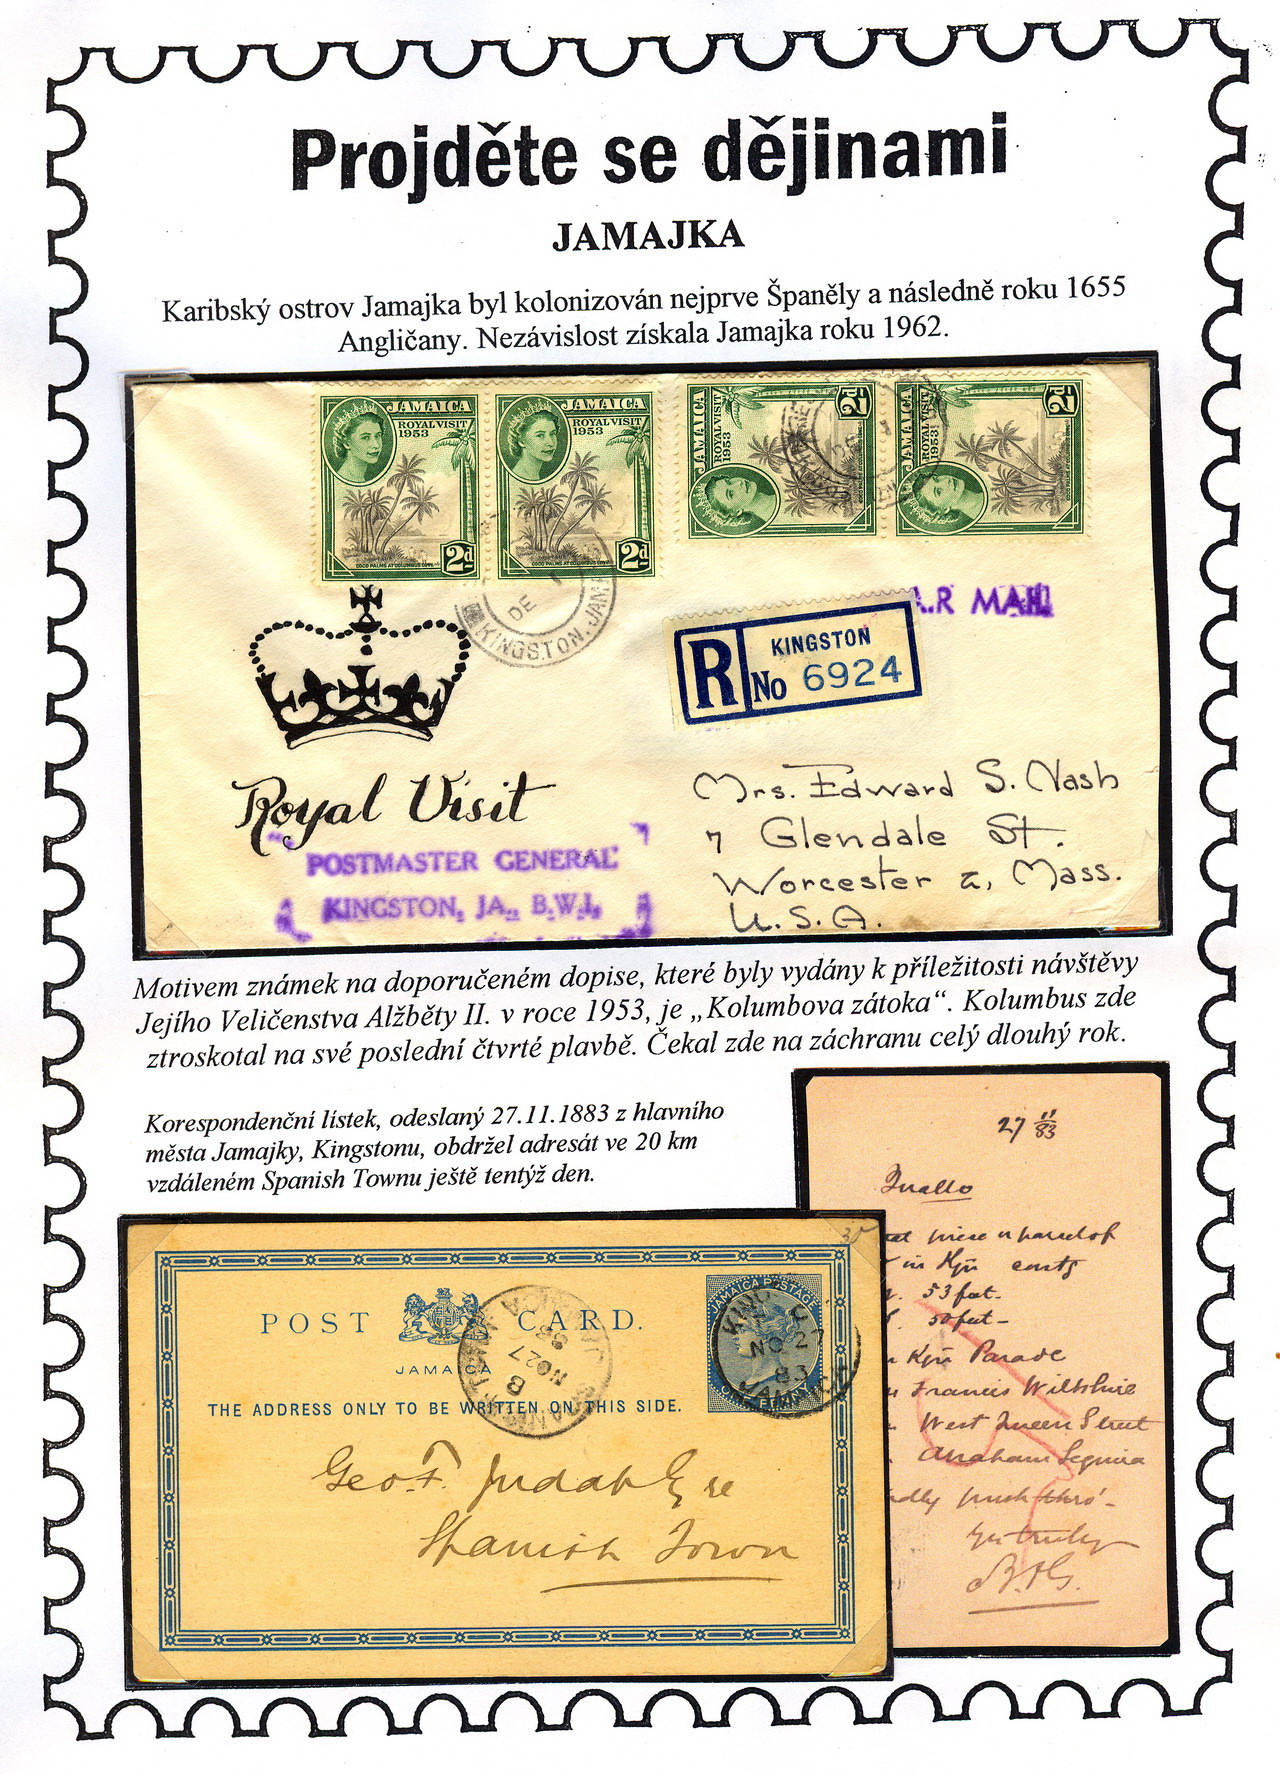 Projděte se dějinami
JAMAJKA
Karibský ostrov Jamajka byl kolonizován nejprve Španěly a následně roku 1655
Angličany. Nezávislost získala Jamajka roku 1962.
JAMAICA
ROYAL VISIT
1953
COCO PALMS AT COLUMBUS COVE
2d
JAMAICA
ROYAL VISIT
1953
COCO PALMS AT COLUMBUS COVE
2d
JAMAICA
ROYAL VISIT
1953
2d
JAMAICA
ROYAL VISIT
1953
2d
DE
KINGSTON, JAM
MAIL
R
KINGSTON
No 6924
Royal Visit
POSTMASTER GENERAL
KINGSTON, JA., B.W.I.
Mrs. Edward S. Nash
7 Glendale St.
Worcester 2, Mass.
U.S.A.
Motivem známek na doporučeném dopise, které byly vydány k příležitosti návštěvy
Jejího Veličenstva Alžběty II. v roce 1953, je „Kolumbova zátoka“. Kolumbus zde
ztroskotal na své poslední čtvrté plavbě. Čekal zde na záchranu celý dlouhý rok.
Korespondenční lístek, odeslaný 27.11.1883 z hlavního
města Jamajky, Kingstonu, obdržel adresát ve 20 km
vzdáleném Spanish Townu ještě tentýž den.
27 11/83
53 feet.
50 feet
Parade
Francis Wiltshire
West Queen Street
Abraham
POST CARD.
JAMAICA
THE ADDRESS ONLY TO BE WRITTEN ON THIS SIDE.
JAMAICA POSTAGE
NO 27
83
JAMAICA
B
NO 27
83
Geo. F. Judah Esq
Spanish Town